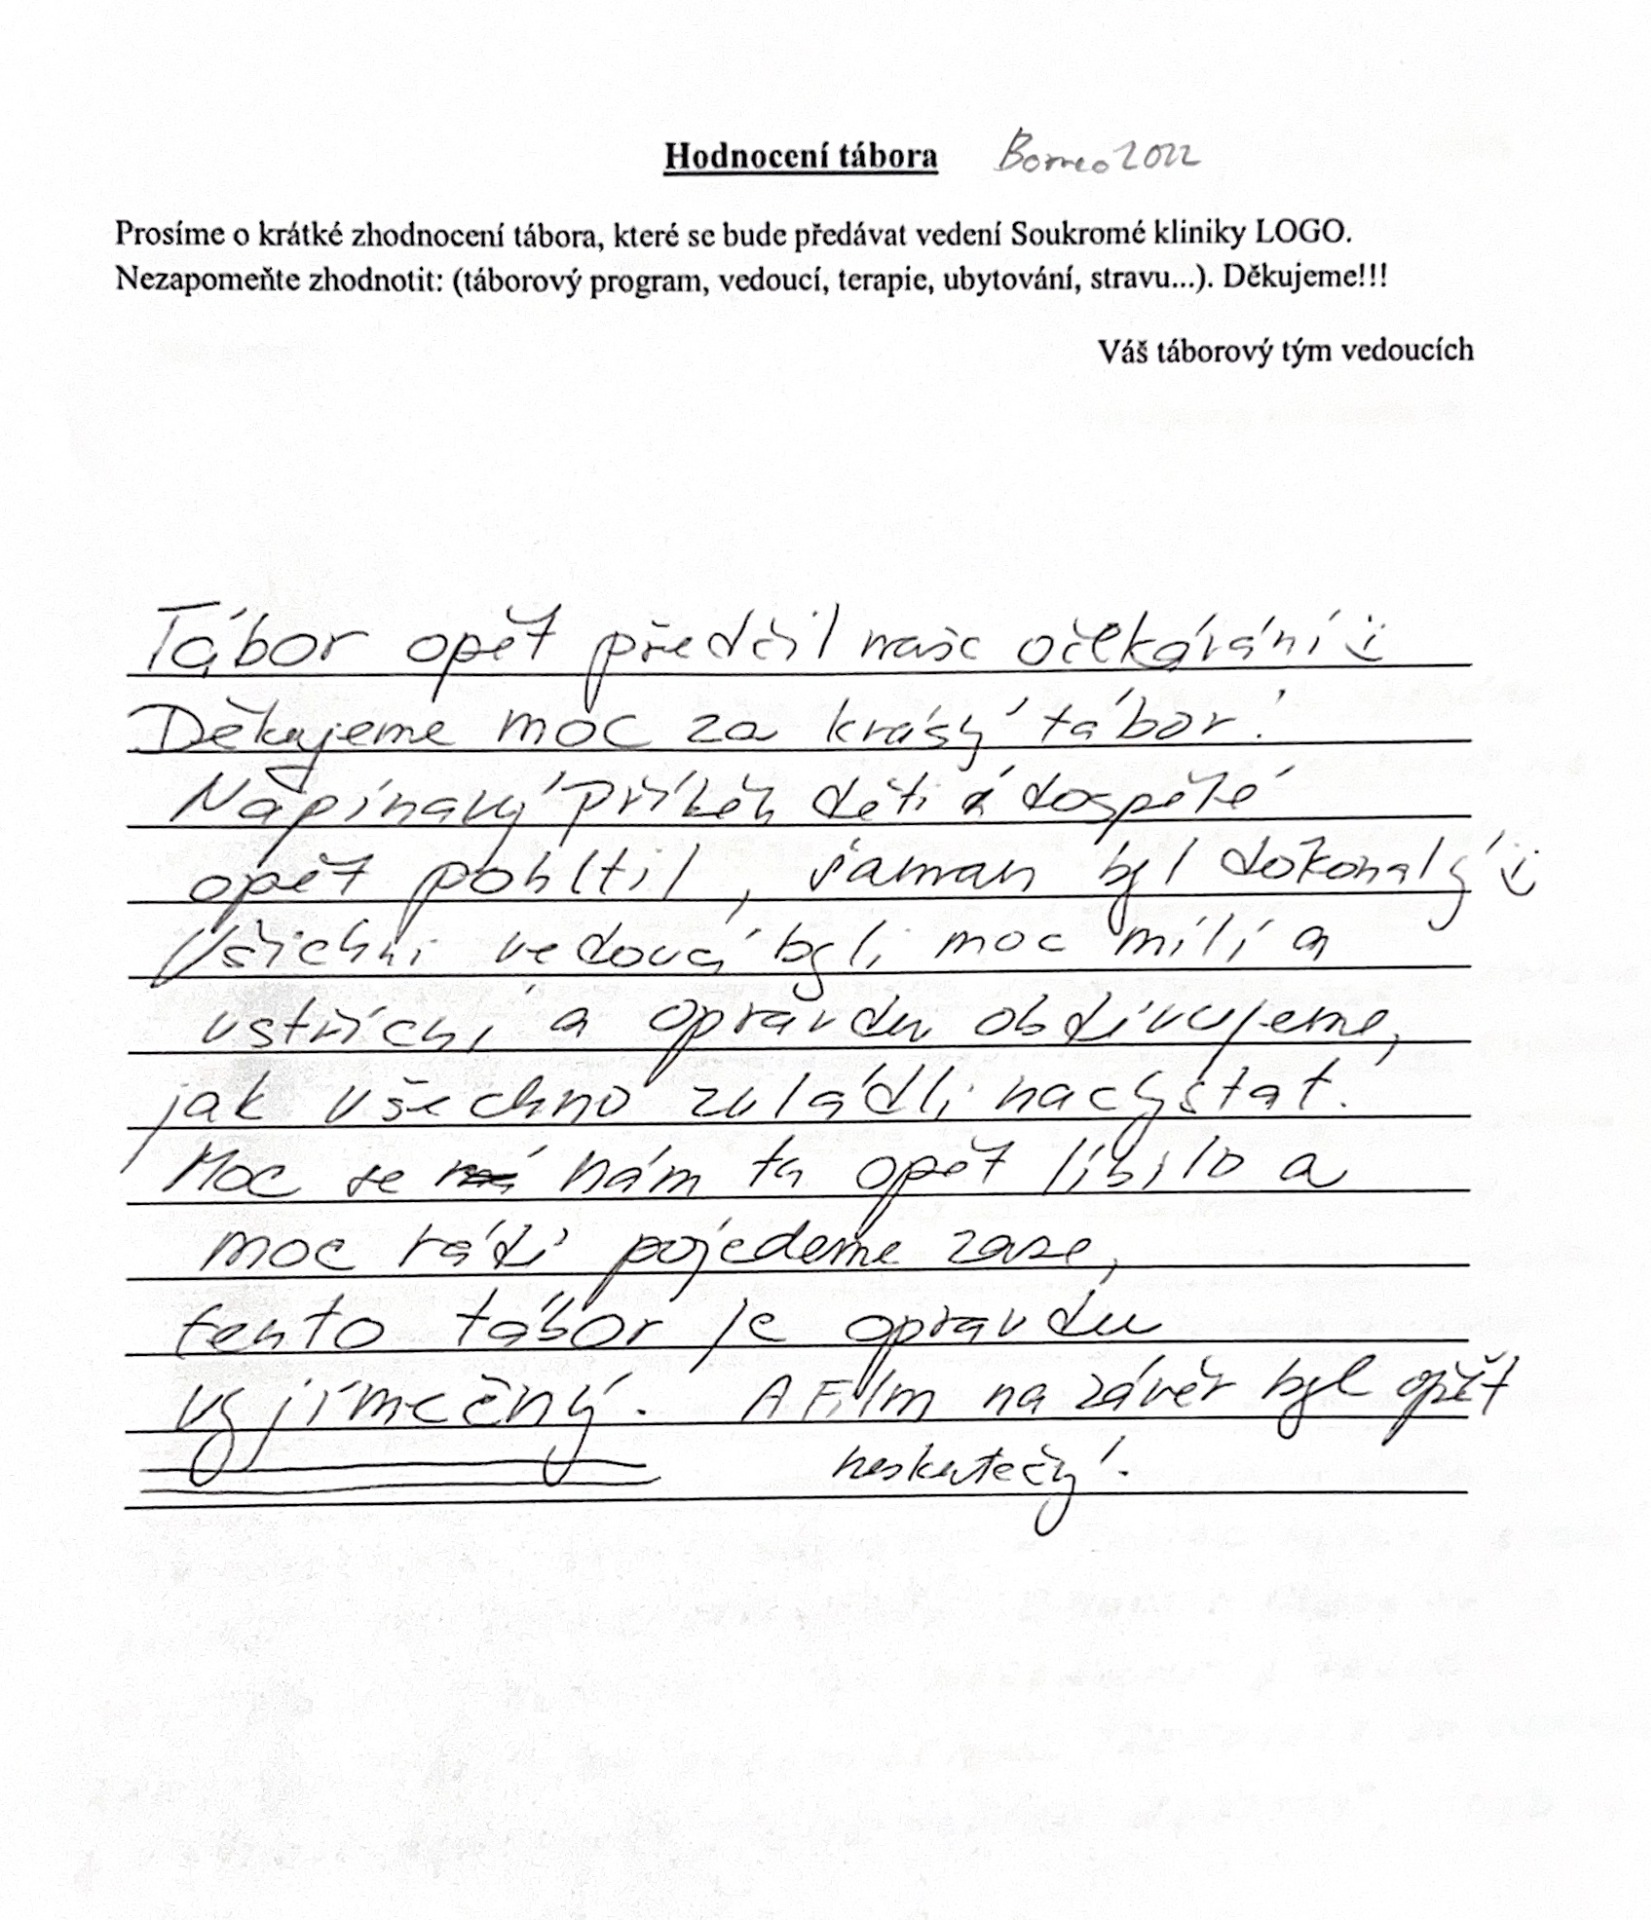 Hodnocení tábora Borneo 2022
Prosíme o krátké zhodnocení tábora, které se bude předávat vedení Soukromé kliniky LOGO.
Nezapomeňte zhodnotit: (táborový program, vedoucí, terapie, ubytování, stravu...). Děkujeme!!!
Váš táborový tým vedoucích
Tábor opět předčil naše očekávání :)
Děkujeme moc za krásý tábor!
Napínavý příběh děti i dospělé
opět pohltil, šaman byl dokonalý :)
Všichni vedoucí byli moc milí a
vstřícní a opravdu obdivujeme,
jak všechno zvládli nachystat.
Moc se nám ta opět líbilo a
moc rádi pojedeme zase,
tento tábor je opravdu
vyjímečný. A Film na závěr byl opět
neskutečý.